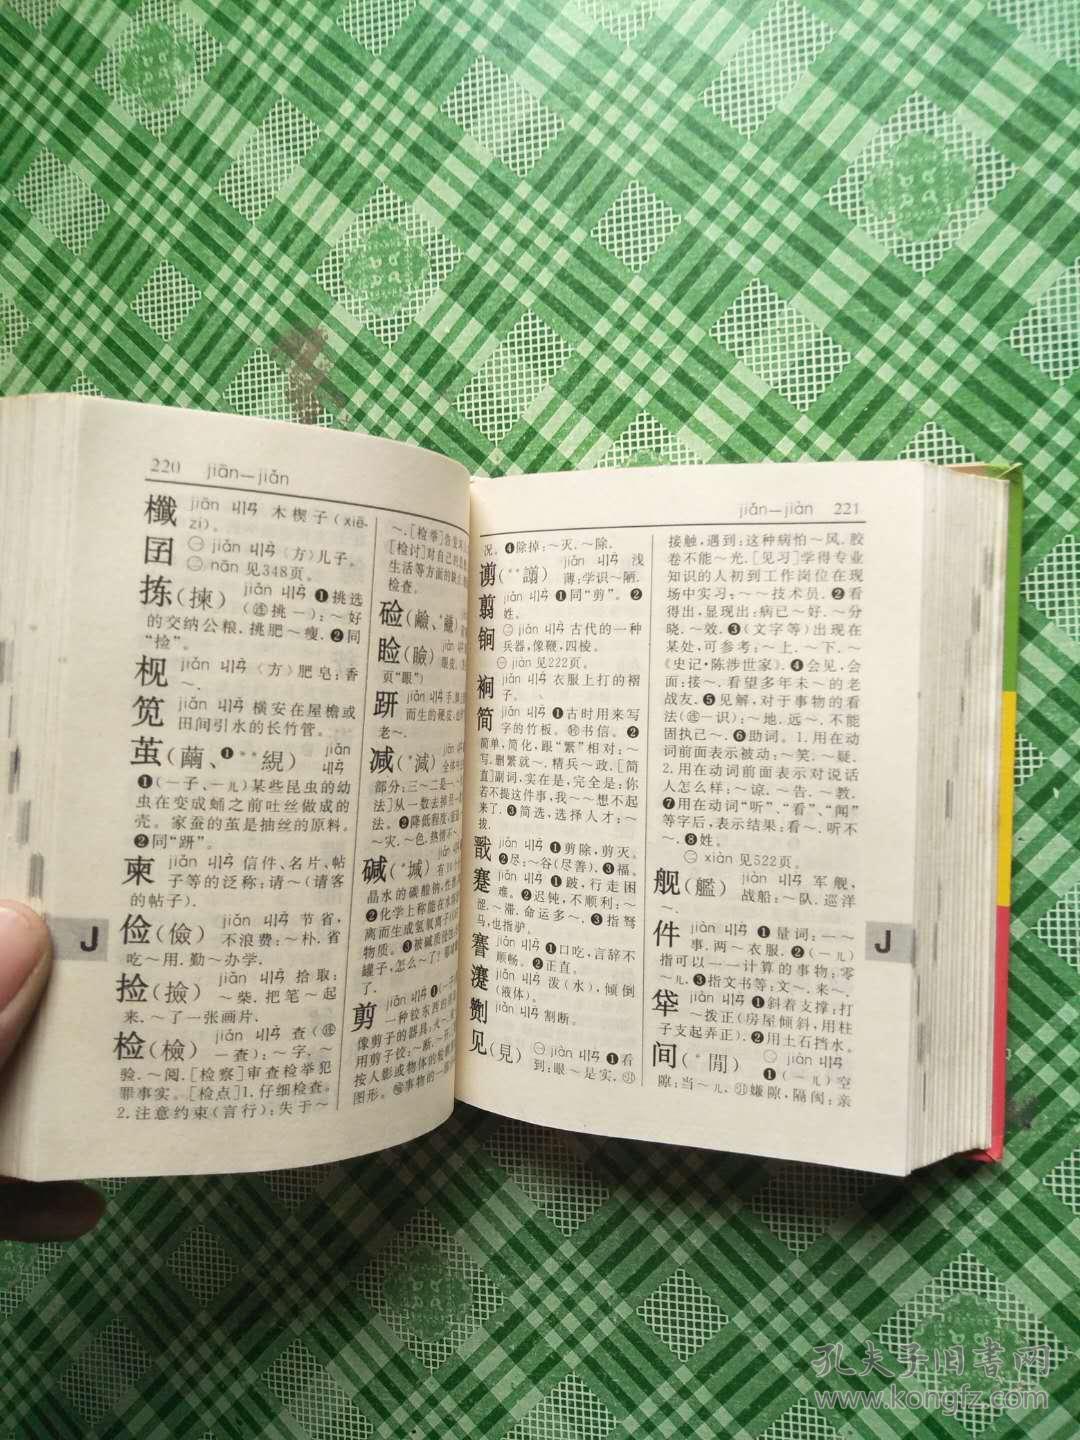 220 jiān—jiǎn
櫼 jiān ㄐㄧㄢ 木楔子(xiē-
zi)。
囝 ㊀ jiǎn ㄐㄧㄢˇ〈方〉儿子。
㊁ nān 见348页。
拣(揀) jiǎn ㄐㄧㄢˇ ❶挑选
(㊣挑一):～好
的交纳公粮. 挑肥～瘦. ❷同
“捡”。
枧 jiǎn ㄐㄧㄢˇ〈方〉肥皂:香
～.
笕 jiǎn ㄐㄧㄢˇ 横安在屋檐或
田间引水的长竹管。
茧(繭、❶**絸) jiǎn
ㄐㄧㄢˇ
❶(一子、一儿)某些昆虫的幼
虫在变成蛹之前吐丝做成的
壳。家蚕的茧是抽丝的原料。
❷同“趼”。
柬 jiǎn ㄐㄧㄢˇ 信件、名片、帖
子等的泛称:请～(请客
的帖子).
俭(儉) jiǎn ㄐㄧㄢˇ 节省,
不浪费:～朴. 省
吃～用. 勤～办学.
捡(撿) jiǎn ㄐㄧㄢˇ 拾取:
～柴. 把笔～起
来. ～了一张画片.
检(檢) jiǎn ㄐㄧㄢˇ 查(㊣
一查):～字. ～
验. ～阅. [检察]审查检举犯
罪事实。[检点]1.仔细检查。
2.注意约束(言行):失于～
～. [检举]告发
[检讨]对自己的
生活等方面的缺点
检查。
硷(鹼、*鹻) jiǎn
睑(瞼) jiǎn
眼皮.
页“眼”)
趼 jiǎn ㄐㄧㄢˇ 手、脚
而生的硬皮
老～.
减(*減) jiǎn
全体中
部分:三～二是一. [
法]从一数去掉另一
法。❷降低程度,
～灾. ～色. 热情不～.
碱(*堿) jiǎn
有10个
晶水的碳酸钠,
❷化学上称能在水
离而生成氢氧离子
物质。❸被碱质侵蚀:
罐子,怎么～了? 
了.
剪 jiǎn ㄐㄧㄢˇ ❶(一子)
一种铰东西的
像剪子的器具:火～.
用剪子铰:～断. ～开.
按人影或物体的轮廓
图形。事物的一部
jiǎn—jiàn 221
况。❹除掉:～灭. ～除.
谫(**譾) jiǎn ㄐㄧㄢˇ 浅
薄:学识～陋.
翦 jiǎn ㄐㄧㄢˇ ❶同“剪”。❷
姓。
锏 ㊀ jiǎn ㄐㄧㄢˇ 古代的一种
兵器,像鞭,四棱。
㊁ jiàn 见222页。
裥 jiǎn ㄐㄧㄢˇ 衣服上打的褶
子。
简 jiǎn ㄐㄧㄢˇ ❶古时用来写
字的竹板。㊕书信。❷
简单,简化,跟“繁”相对:～
写. 删繁就～. 精兵～政. [简
直]副词,实在是,完全是:你
若不提这件事,我～～想不起
来了. ❸简选,选择人才:～
拔.
戬 jiǎn ㄐㄧㄢˇ ❶剪除,剪灭。
❷尽:～谷(尽善). ❸福。
蹇 jiǎn ㄐㄧㄢˇ ❶跛,行走困
难。❷迟钝,不顺利:～
涩. ～滞. 命运多～. ❸指驽
马,也指驴。
謇 jiǎn ㄐㄧㄢˇ ❶口吃,言辞不
顺畅。❷正直。
瀽 jiǎn ㄐㄧㄢˇ 泼(水),倾倒
(液体)。
劗 jiǎn ㄐㄧㄢˇ 割断。
见(見) ㊀ jiàn ㄐㄧㄢˋ ❶看
到:眼～是实. ㊛
接触,遇到:这种病怕～风. 胶
卷不能～光. [见习]学得专业
知识的人初到工作岗位在现
场中实习:～～技术员. ❷看
得出,显现出:病已～好. ～分
晓. ～效. ❸(文字等)出现在
某处,可参考:～上. ～下. ～
《史记·陈涉世家》. ❹会见,会
面:接～. 看望多年未～的老
战友. ❺见解,对于事物的看
法(㊣一识):～地. 远～. 不能
固执己～. ❻助词。1.用在动
词前面表示被动:～笑. ～疑.
2.用在动词前面表示对说话
人怎么样:～谅. ～告. ～教.
❼用在动词“听”、“看”、“闻”
等字后,表示结果:看～. 听不
～. ❽姓。
㊁ xiàn 见522页。
舰(艦) jiàn ㄐㄧㄢˋ 军舰,
战船:～队. 巡洋
～.
件 jiàn ㄐㄧㄢˋ ❶量词:一～
事. 两～衣服. ❷(一儿)
指可以一一计算的事物:零
～儿. ❸指文书等:文～. 来～.
牮 jiàn ㄐㄧㄢˋ ❶斜着支撑:打
～拨正(房屋倾斜,用柱
子支起弄正). ❷用土石挡水。
间(*閒) ㊀ jiàn ㄐㄧㄢˋ
❶(一儿)空
隙:当～儿. ㊛嫌隙,隔阂:亲
J
J
孔夫子旧书网
www.kongfz.com